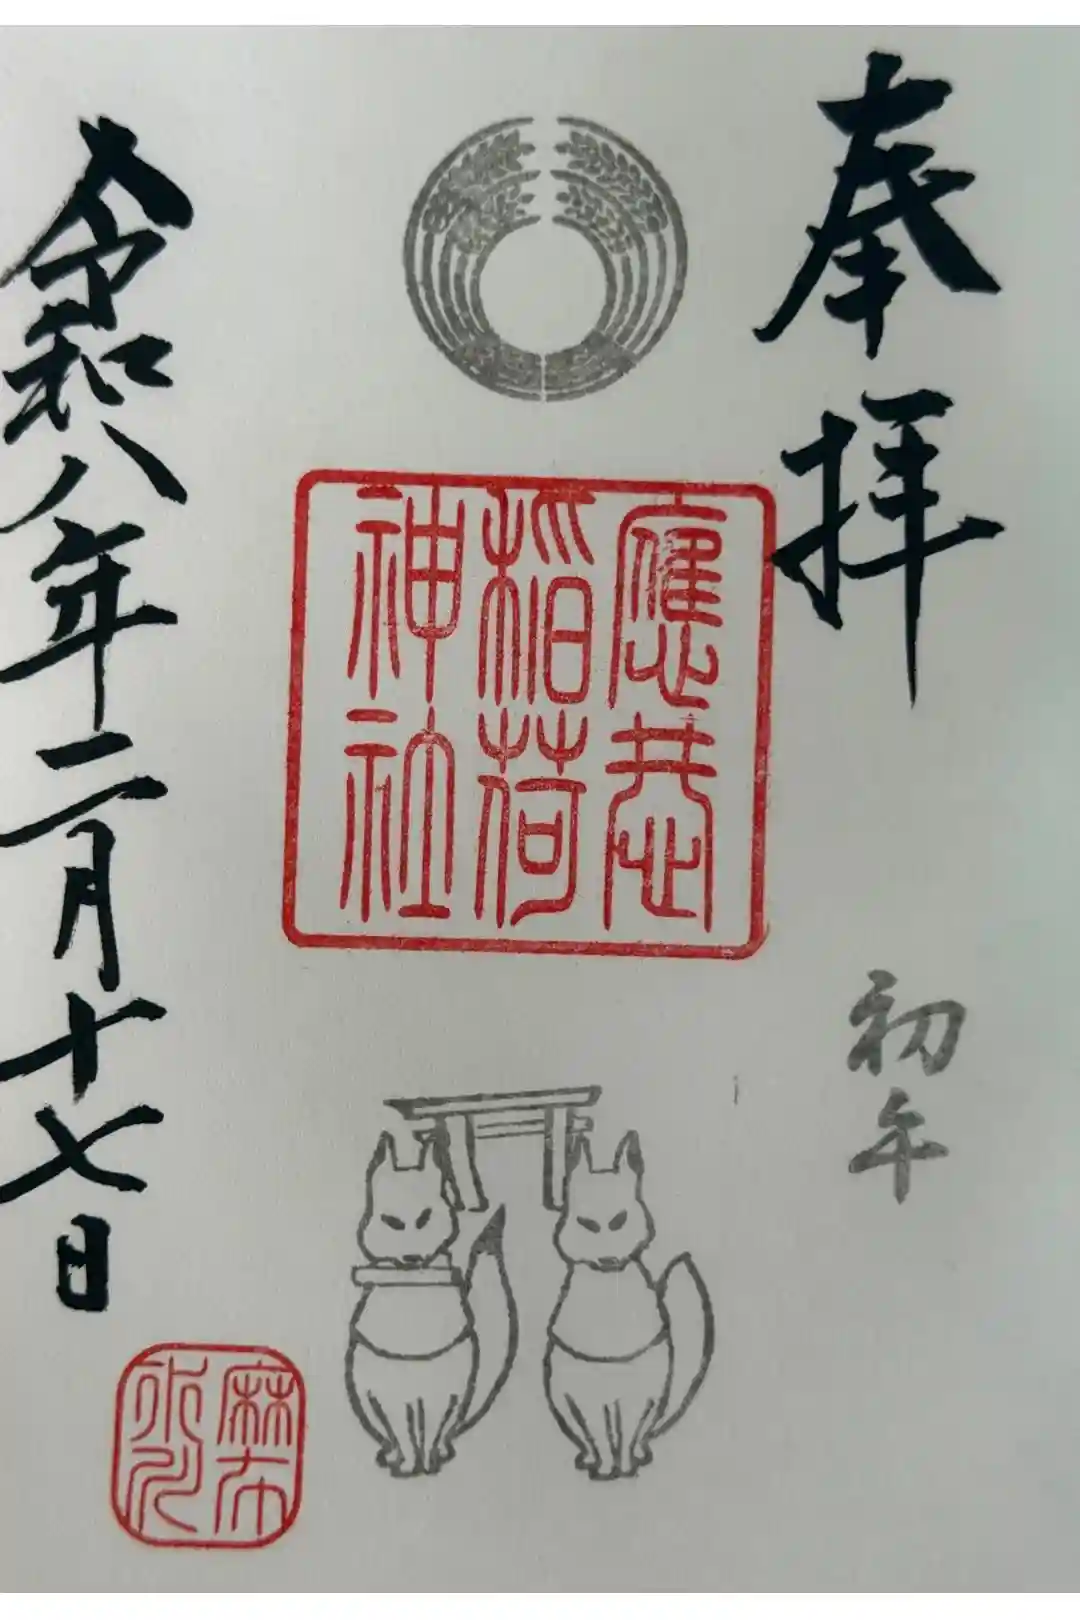 奉拝
初午
應恭
稲荷
神社
令和八年二月十七日
麻布
氷川